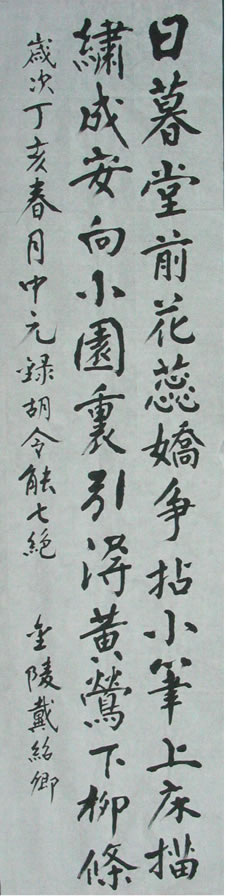 日暮堂前花蕊嬌爭拈小筆上床描
繡成安向小園裏引得黃鶯下柳條
歲次丁亥春月中元錄胡令能七絕 金陵戴紹卿